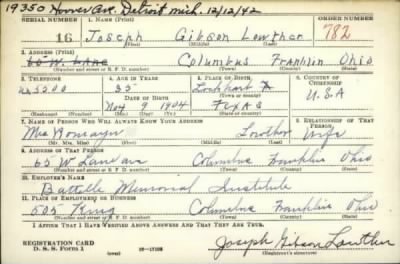 19350 Hoover Ave. Detroit Mich. 12/12/42
SERIAL NUMBER 1. NAME (Print) ORDER NUMBER
16 Joseph Gibson Lowther 782
(First) (Middle) (Last)
2. ADDRESS (Print)
65 W. Lane Columbus Franklin Ohio
(Number and street or R. F. D. number) (Town) (County) (State)
3. TELEPHONE 4. AGE IN YEARS 5. PLACE OF BIRTH 6. COUNTRY OF CITIZENSHIP
35 Lockhart
DATE OF BIRTH (Town or county) U.S.A
Nov 9 1904 Texas
(Mo.) (Day) (Yr.) (State or country)
7. NAME OF PERSON WHO WILL ALWAYS KNOW YOUR ADDRESS 8. RELATIONSHIP OF THAT PERSON
Mrs Romayn Lowther Wife
(Mr., Mrs., Miss) (First) (Middle) (Last)
9. ADDRESS OF THAT PERSON
65 W Lane Ave Columbus Franklin Ohio
(Number and street or R. F. D. number) (Town) (County) (State)
10. EMPLOYER'S NAME
Battelle Memorial Institute
11. PLACE OF EMPLOYMENT OR BUSINESS
505 King Columbus Franklin Ohio
(Number and street or R. F. D. number) (Town) (County) (State)
I AFFIRM THAT I HAVE VERIFIED ABOVE ANSWERS AND THAT THEY ARE TRUE.
REGISTRATION CARD
D. S. S. Form 1
Joseph Gibson Lowther
(Registrant's signature)